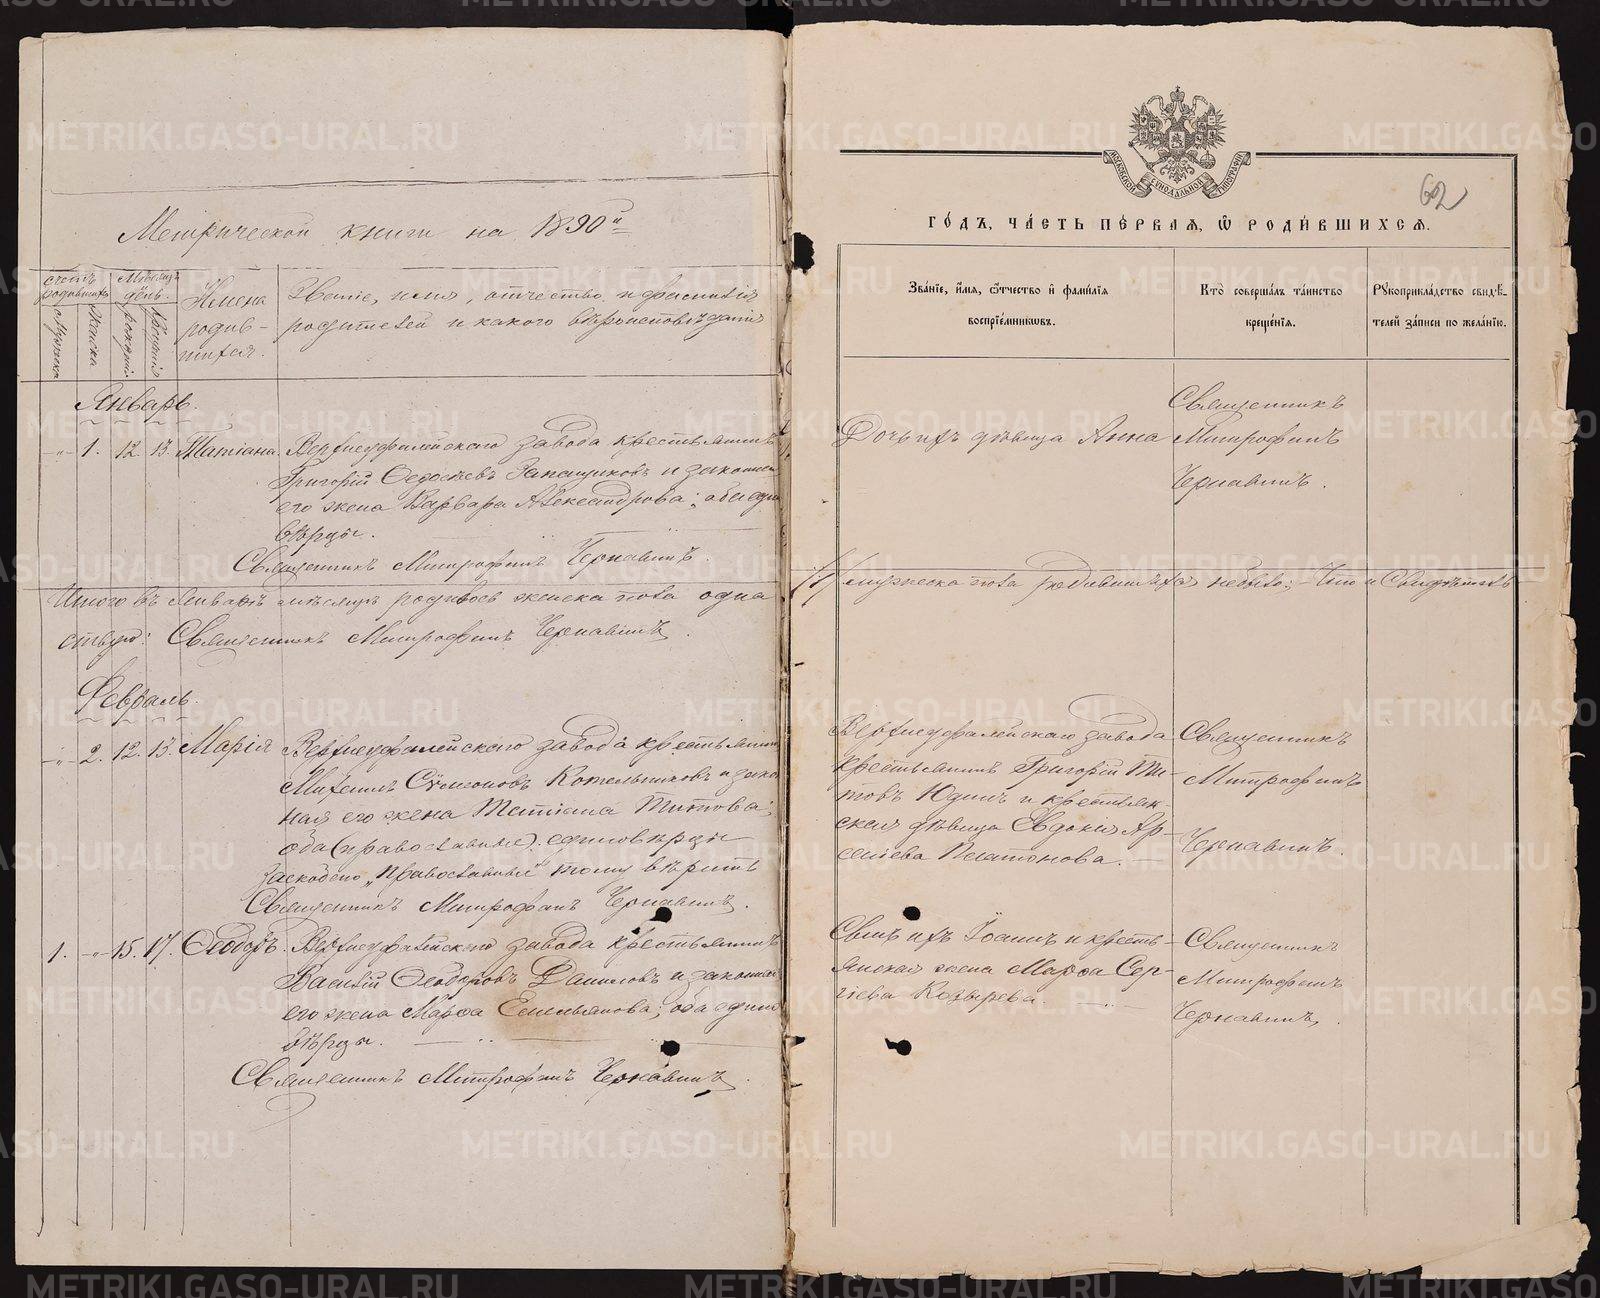 Метрической книги на 1890й
счетъ родившихся
Мужеска
Женска
Мѣсяцъ день.
рожденія
крещенія
Имена
родив-
шихся.
Званіе, имя, отчество и фамилія
родителей и какого вѣроисповѣданія
Январь.
-"- 1. 12. 13. Татіана. Верхнеуфалейскаго завода крестьянинъ
Григорій Ѳедосѣевъ Запащиковъ и законная
его жена Варвара Александрова; оба едино
вѣрцы.
Священникъ Митрофанъ Чернавинъ.
Итого въ Январѣ мѣсяцѣ родилось женска пола одна
Священникъ Митрофанъ Чернавинъ.
Февраль.
-"- 2. 12. 13. Марія Верхнеуфалейскаго завода крестьянинъ
Михаилъ Котельниковъ и закон
ная его жена Татіана Титова;
оба (православные). единовѣрцы
Заскоблено "православные" тому вѣрить
Священникъ Митрофанъ Чернавинъ.
1. -"- 15. 17. Ѳеодоръ. Верхнеуфалейскаго завода крестьянинъ
Василій Ѳеодоровъ Даниловъ и законная
его жена Марѳа Емельянова; оба едино
вѣрцы.
Священникъ Митрофанъ Чернавинъ.
МОСКОВСКОЙ СУНОДАЛЬНОЙ ТИПОГРАФІИ
62
ГО́ДЪ, ЧА́СТЬ ПЕ́РВАЯ, Ѿ РОДИ́ВШИХСЯ.
Зва́нїе, и́мѧ, ѻ҆́тчество и҆ фами́лїѧ
воспрїе́мниковъ.
Кто̀ соверша́лъ та́инство
креще́нїѧ.
Рꙋкоприкла́дство свидѣ́-
телей за́писи по жела́нїю.
Дочь ихъ дѣвица Анна
Священникъ
Митрофанъ
Чернавинъ.
мужеска пола родившихся небыло; Что и Свидѣтель
Верхнеуфалейскаго завода
крестьянинъ Григорій Ти-
товъ Юдинъ и крестьян-
ская дѣвица Евдокія Ар-
сеніева Платонова.
Священникъ
Митрофанъ
Чернавинъ.
Сынъ ихъ Іоаннъ и кресть-
янская жена Марѳа Сер-
гіева Козырева.
Священникъ
Митрофанъ
Чернавинъ.
METRIKI.GASO-URAL.RU